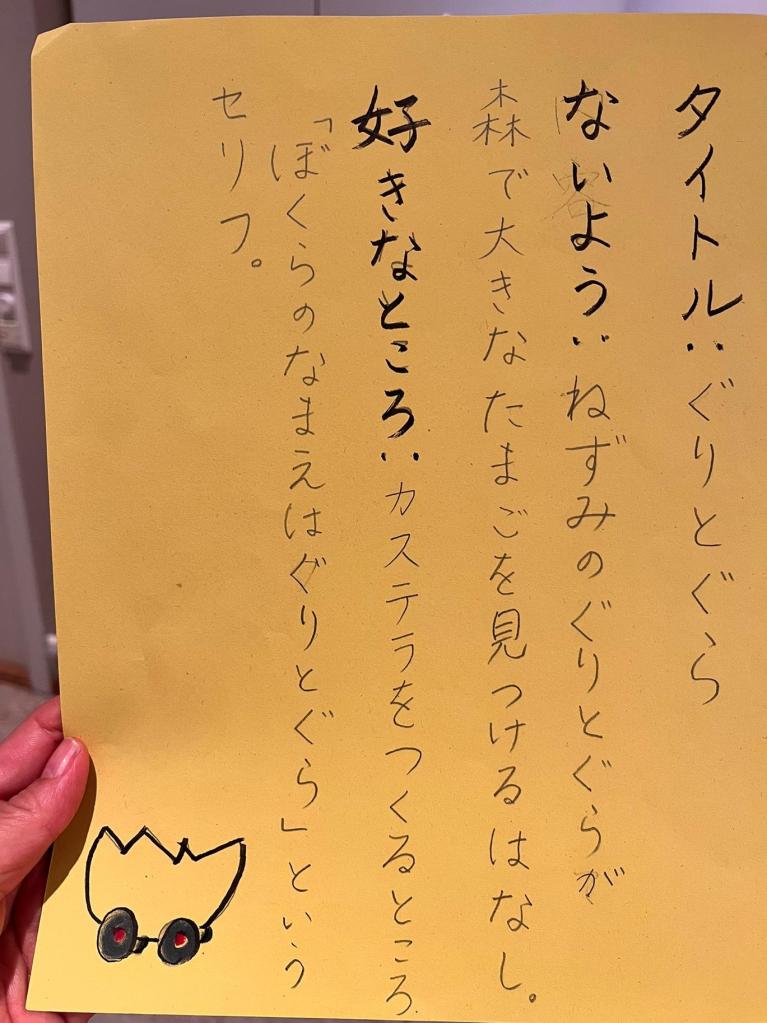 タイトル：ぐりとぐら
ないよう：ねずみのぐりとぐらが
森で大きなたまごを見つけるはなし。
好きなところ：カステラをつくるところ
「ぼくらのなまえはぐりとぐら」という
セリフ。